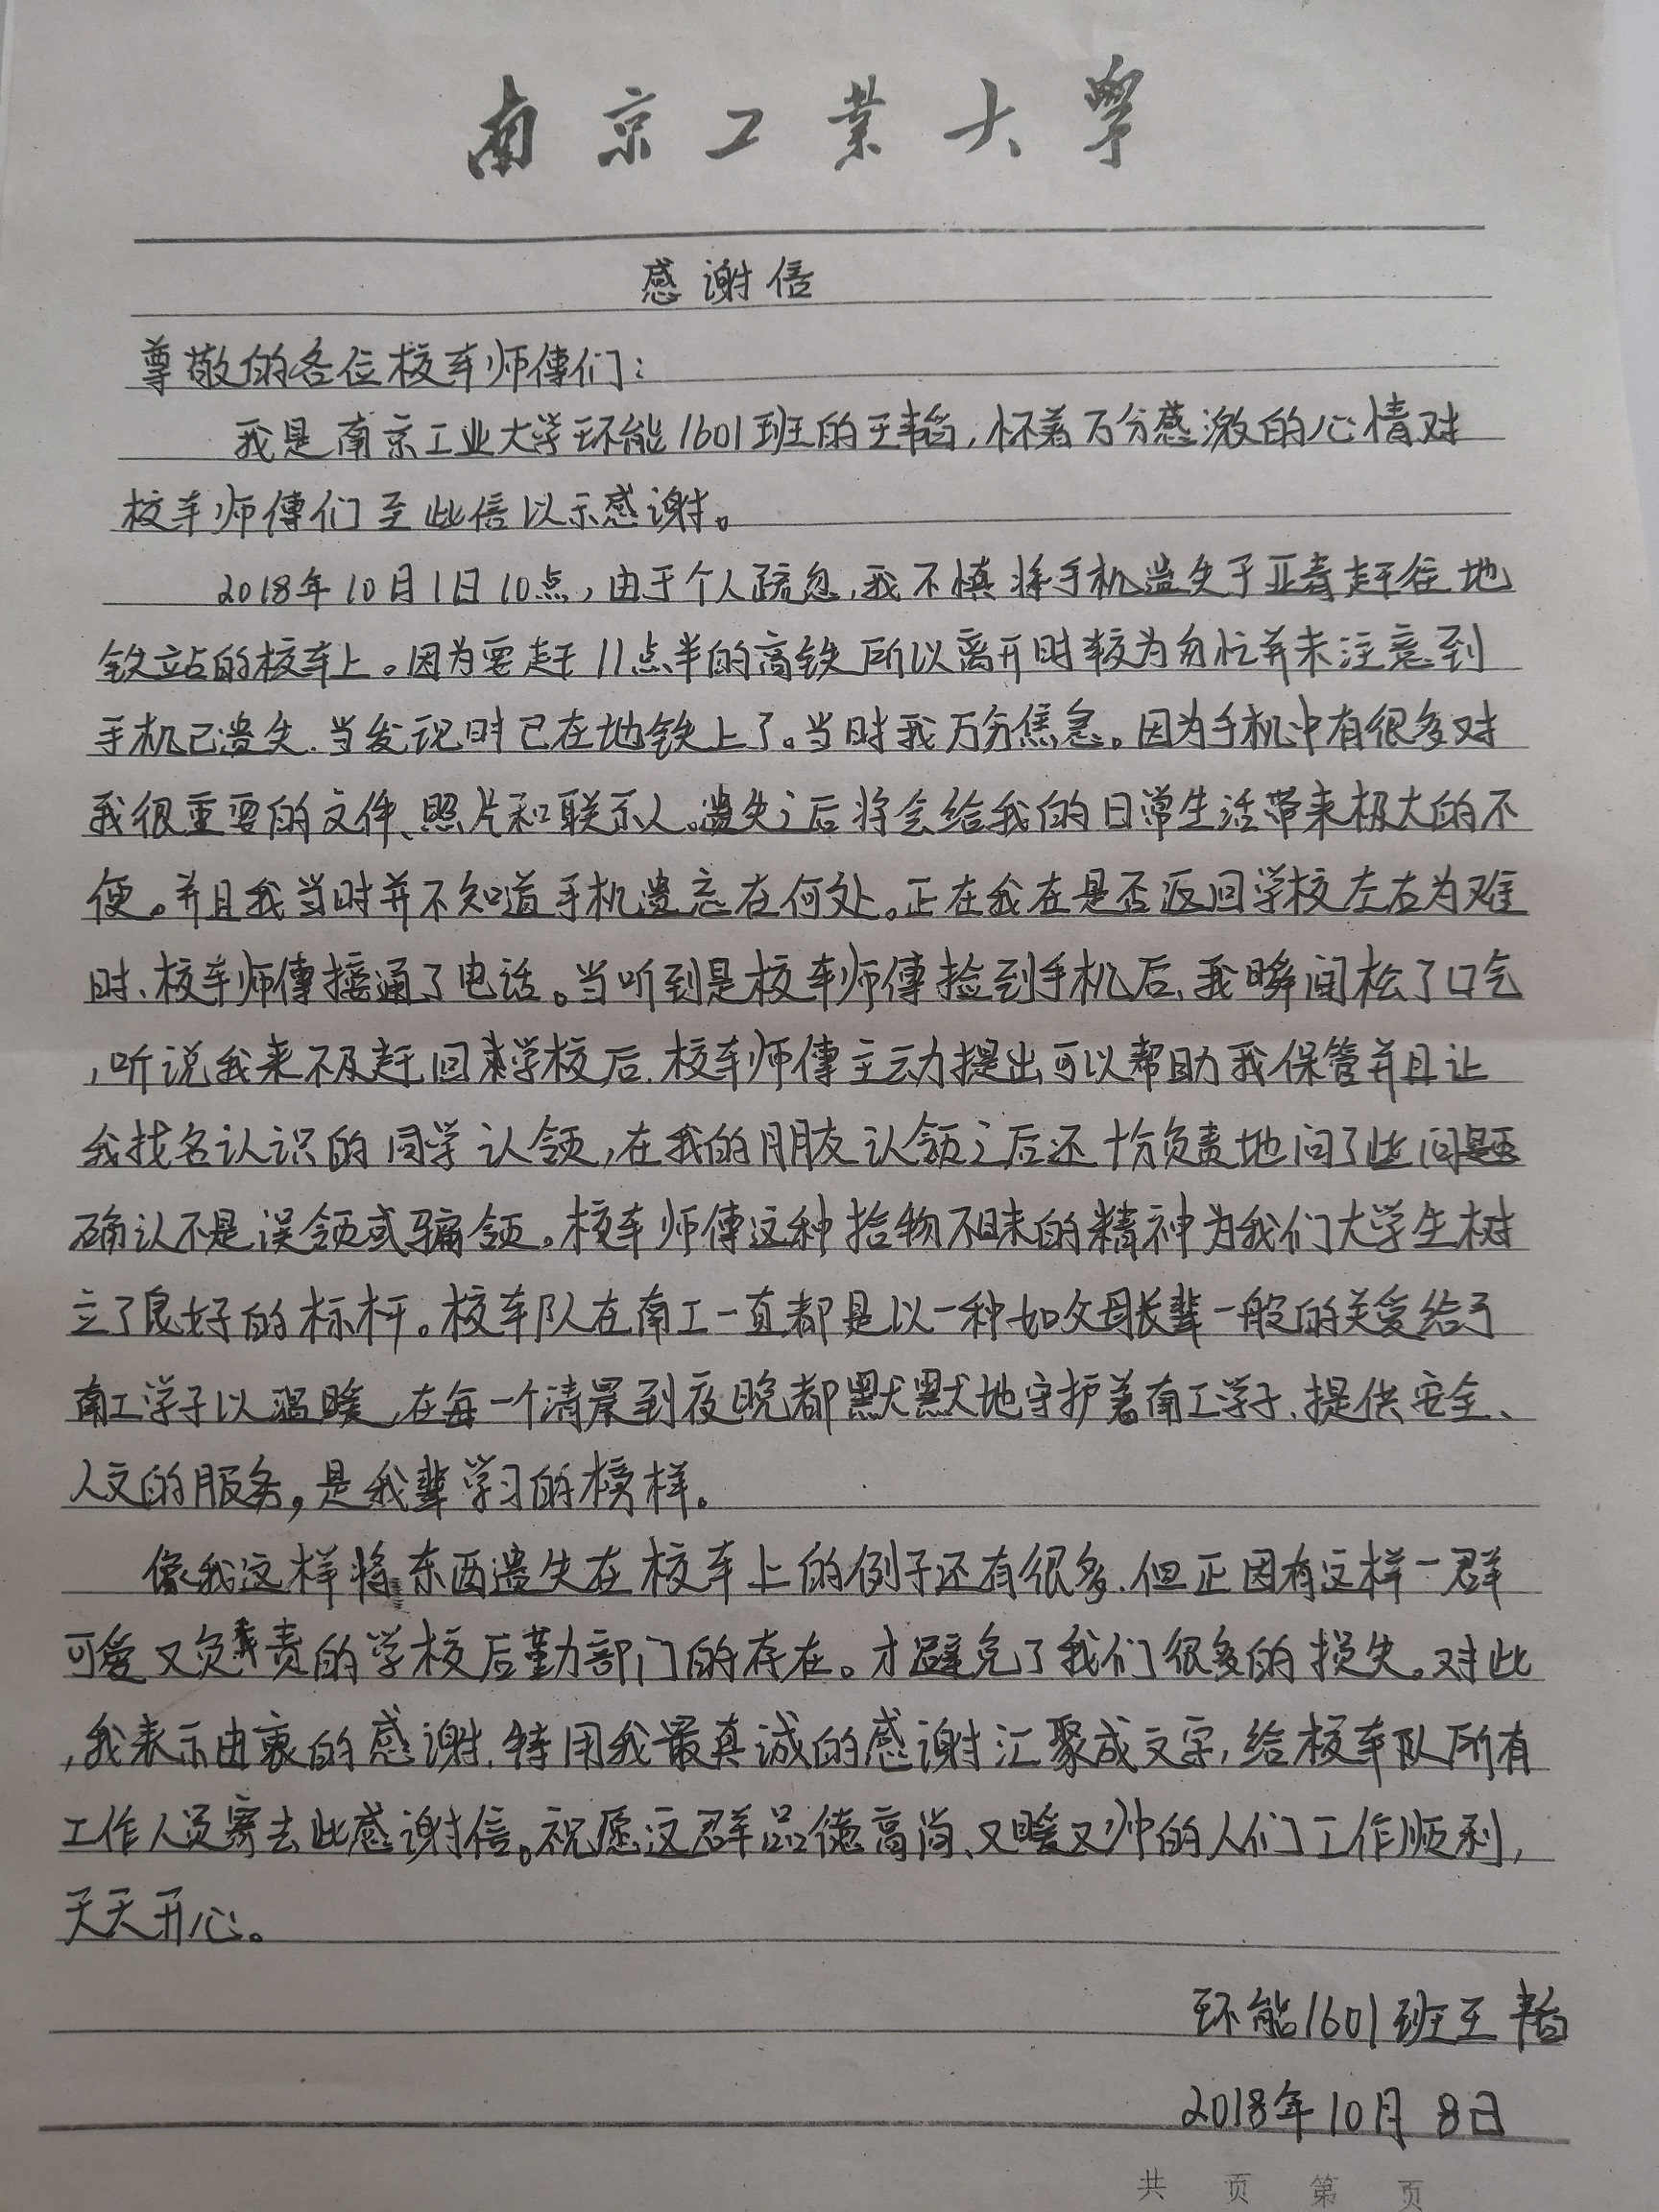 南京工业大學
感谢信
尊敬的各位校车师傅们：
我是南京工业大学环能1601班的王韬，怀着万分感激的心情对
校车师傅们至此信以示感谢。
2018年10月1日10点，由于个人疏忽，我不慎将手机遗失于亚青赶往地
铁站的校车上。因为要赶11点半的高铁所以离开时较为匆忙并未注意到
手机已遗失.当发现时已在地铁上了。当时我万分焦急。因为手机中有很多对
我很重要的文件、照片和联系人。遗失之后将会给我的日常生活带来极大的不
便。并且我当时并不知道手机遗忘在何处。正在我在是否返回学校左右为难
时、校车师傅接通了电话。当听到是校车师傅捡到手机后、我瞬间松了口气
，听说我来不及赶回来学校后.校车师傅主动提出可以帮助我保管并且让
我找名认识的同学认领，在我的朋友认领之后还十分负责地问了些问题
确认不是误领或骗领。校车师傅这种拾物不昧的精神为我们大学生树
立了良好的标杆。校车队在南工一直都是以一种如父母长辈一般的关爱给予
南工学子以温暖，在每一个清晨到夜晚都默默地守护着南工学子.提供安全、
人文的服务，是我辈学习的榜样。
像我这样将东西遗失在校车上的例子还有很多.但正因有这样一群
可爱又负责的学校后勤部门的存在。才避免了我们很多的损失。对此
，我表示由衷的感谢.特用我最真诚的感谢汇聚成文字，给校车队所有
工作人员寄去此感谢信。祝愿这群品德高尚、又暖又帅的人们工作顺利，
天天开心。
环能1601班王韬
2018年10月8日
共 页 第 页